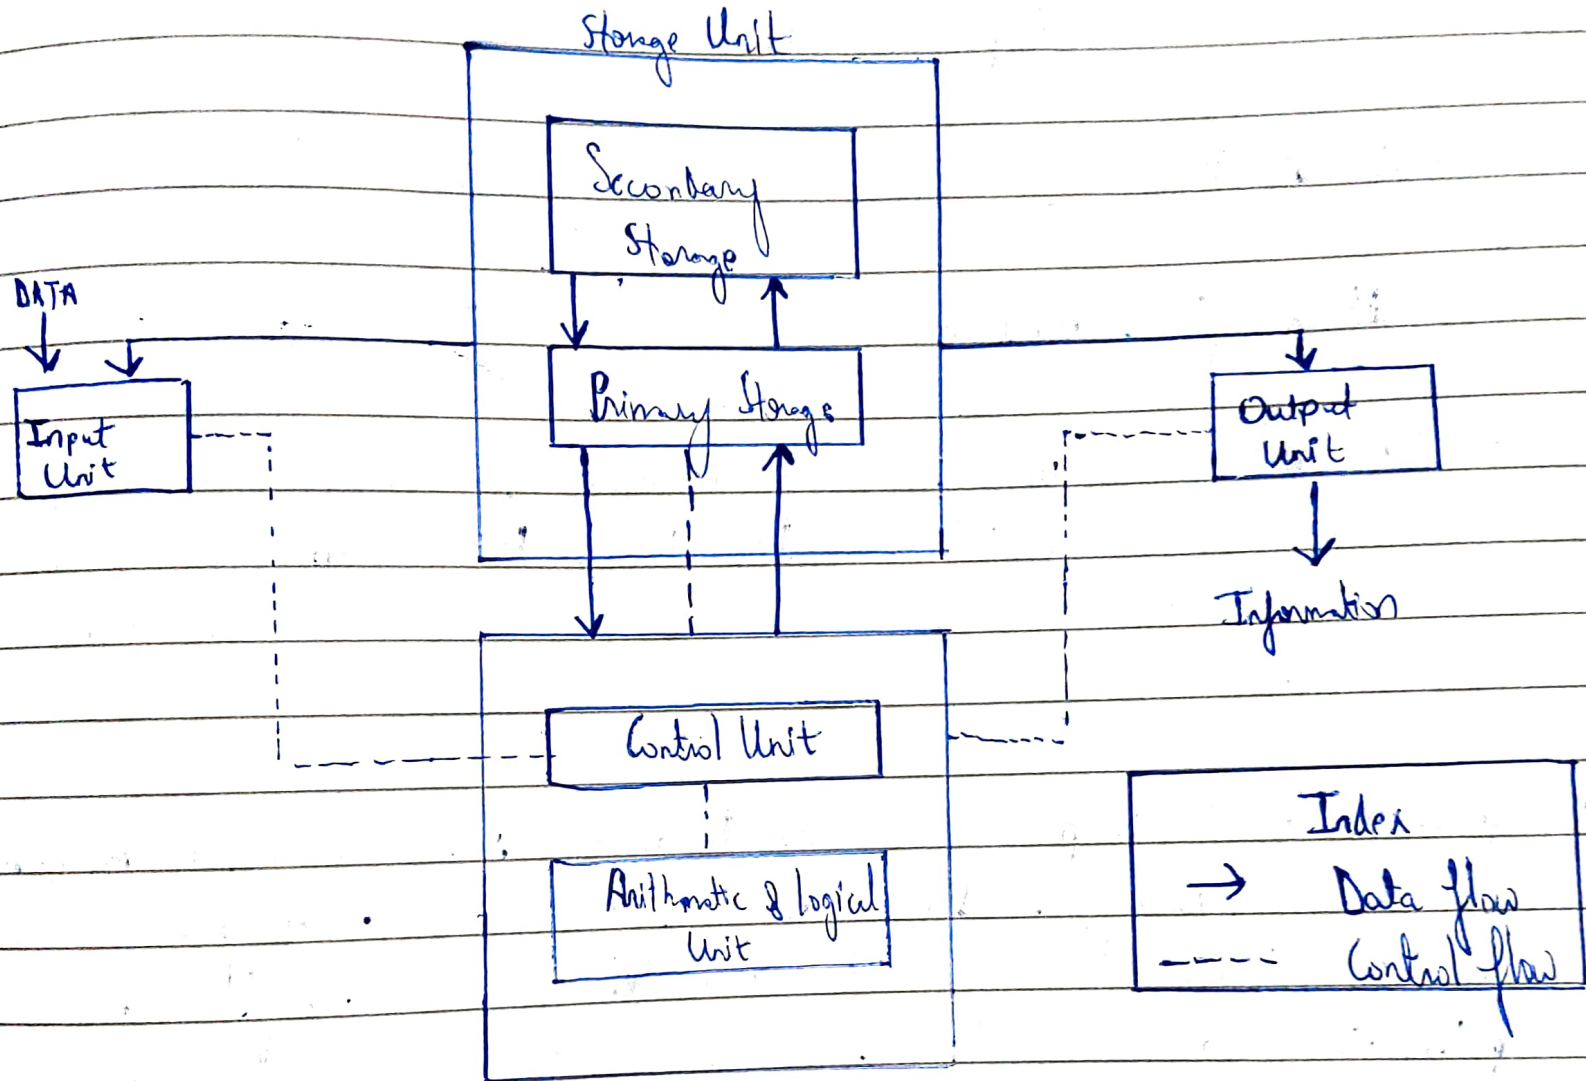 Storage Unit
Secondary
Storage
DATA
Primary Storage
Input
Unit
Output
Unit
Information
Control Unit
Arithmatic & logical
Unit
Index
→ Data flow
---- Control flow